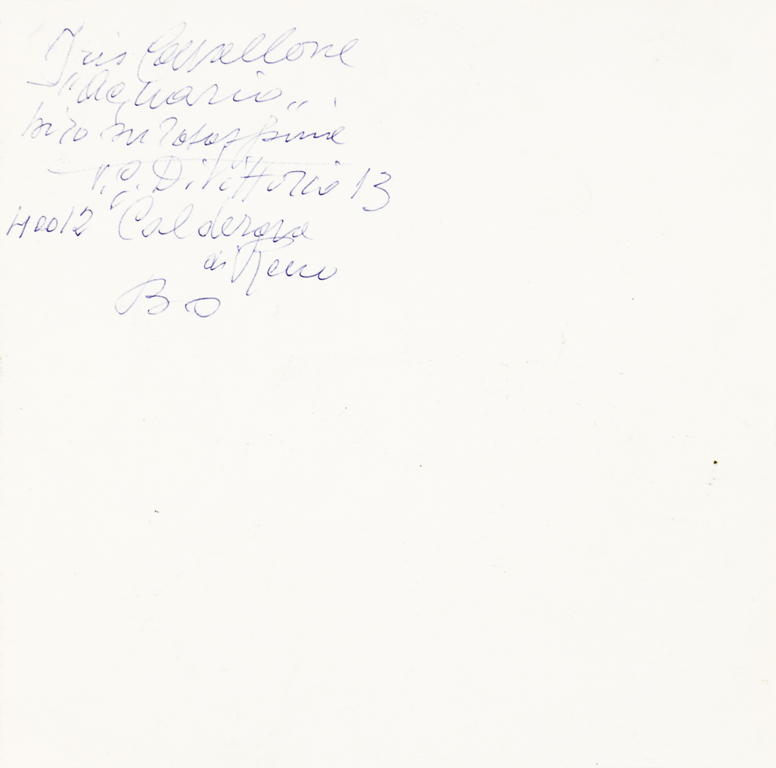 Iris Casallone
"Acquario"
biro su rosaspina
V. G. Di Vittorio 13
40012 Calderara
di Reno
BO